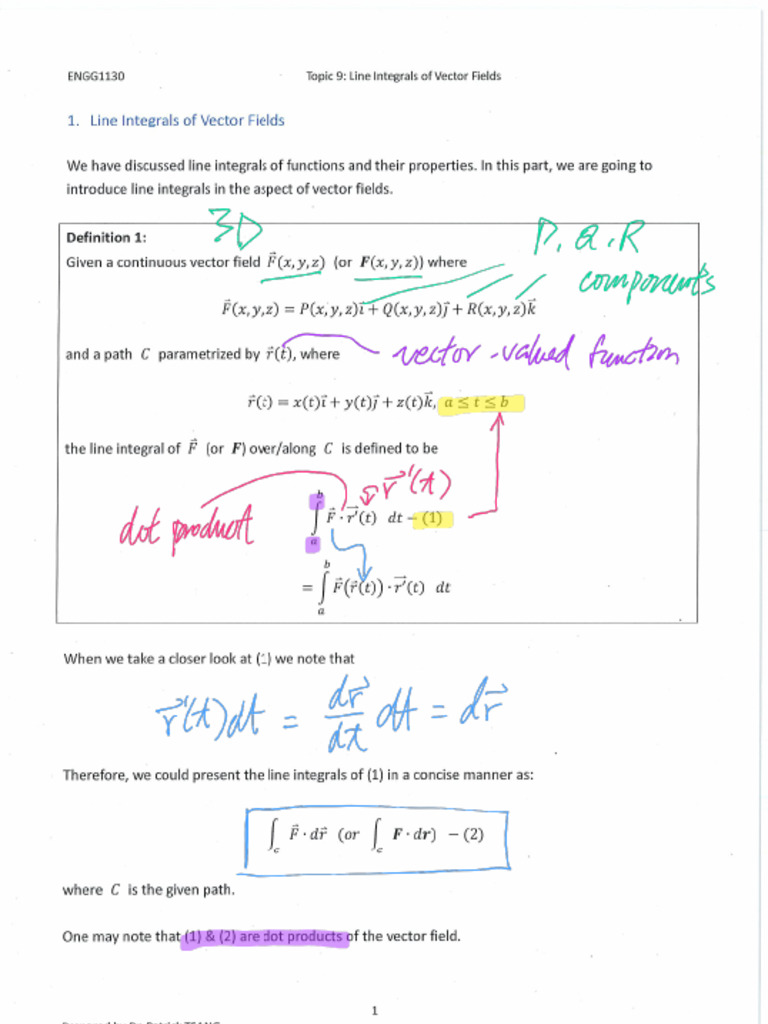 ENGG1130 Topic 9: Line Integrals of Vector Fields
1. Line Integrals of Vector Fields
We have discussed line integrals of functions and their properties. In this part, we are going to
introduce line integrals in the aspect of vector fields.
3D
Definition 1:
P, Q, R
components
Given a continuous vector field F⃗(x,y,z) (or F(x,y,z)) where
F⃗(x,y,z) = P(x,y,z)i⃗ + Q(x,y,z)j⃗ + R(x,y,z)k⃗
and a path C parametrized by r⃗(t), where
vector-valued function
r⃗(t) = x(t)i⃗ + y(t)j⃗ + z(t)k⃗, a ≤ t ≤ b
the line integral of F⃗ (or F) over/along C is defined to be
r⃗'(t)
dot product
∫_a^b F⃗ · r⃗'(t) dt – (1)
= ∫_a^b F⃗(r⃗(t)) · r⃗'(t) dt
When we take a closer look at (1) we note that
r⃗'(t)dt = dr⃗/dt dt = dr⃗
Therefore, we could present the line integrals of (1) in a concise manner as:
∫_c F⃗ · dr⃗ (or ∫_c F · dr) – (2)
where C is the given path.
One may note that (1) & (2) are dot products of the vector field.
1